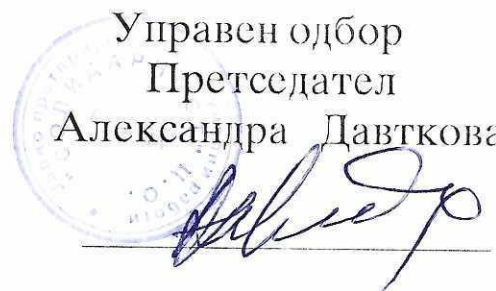 Управен одбор
Претседател
Александра Давткова